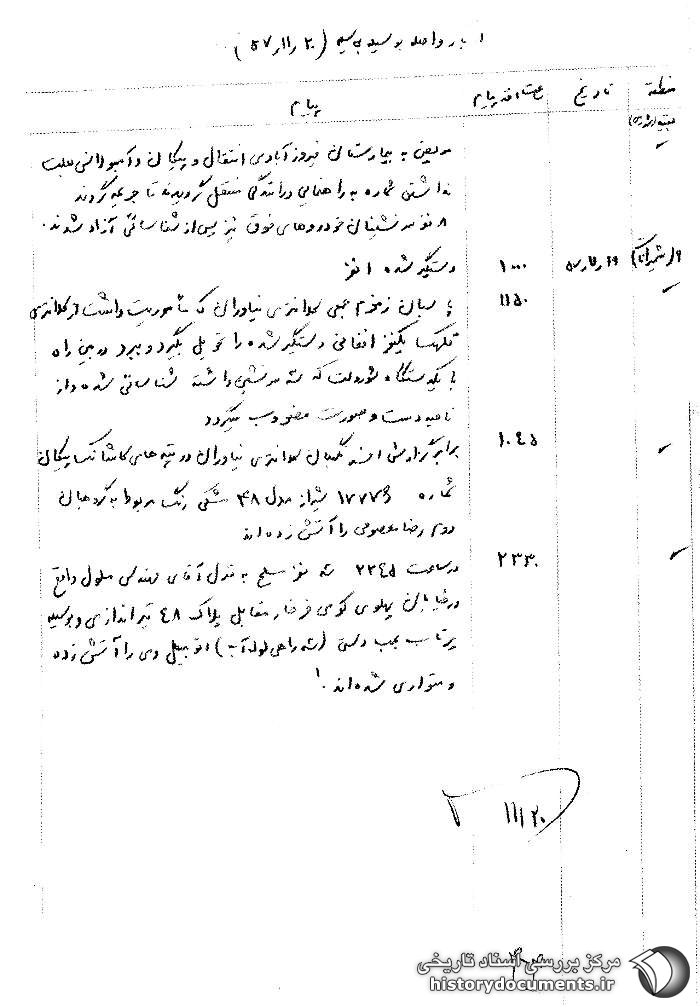 اخبار واصله بوسیله بی سیم ( ۲۰ر۱۱ر۵۷ )
منطقه تاریخ ساعت اخذ پیام پیام
بقیه
مریض به بیمارستان فیروزآبادی انتقال و پیکان و آمبولانس بعلت
نداشتن شماره به راهنمایی و رانندگی منتقل گردیدند تا جریمه گردند
۸ نفر سرنشینان خودروهای فوق نیز پس از شناسائی آزاد شدند.
۹(شمیرانات) ۵۷ ۱۰۰۰ دستگیر شده ۱ نفر
۱۱۵۰ پاسبان جمعی کلانتری نیاوران که مأموریت داشت از کلانتری
قلهک یکنفر افغانی دستگیر شده را تحویل بگیرد و ببرد در بین راه
با یکدستگاه شورلت که سه سرنشین داشته شناسائی شده و از
ناحیه دست و صورت مضروب میگردد
۱۰۴۵ برابر گزارش افسر نگهبان کلانتری نیاوران در تپه های کاشانک پیکان
شماره ۱۷۷۷۶ شیراز مدل ۴۸ مشکی رنگ مربوط به گروهبان
دوم رضا معصومی را آتش زده اند
۲۳۳۰ در ساعت ۲۲۴۵ سه نفر مسلح به منزل آقای مهندس واقع
در خیابان پهلوی کوی فرخار مقابل پلاک ۴۸ تیراندازی و بوسیله
پرتاب بمب دستی (سه راهی لوله آب) اتومبیل وی را آتش زده
و متواری شده اند.
۱۱/۲۰
مرکز بررسی اسناد تاریخی
historydocuments.ir